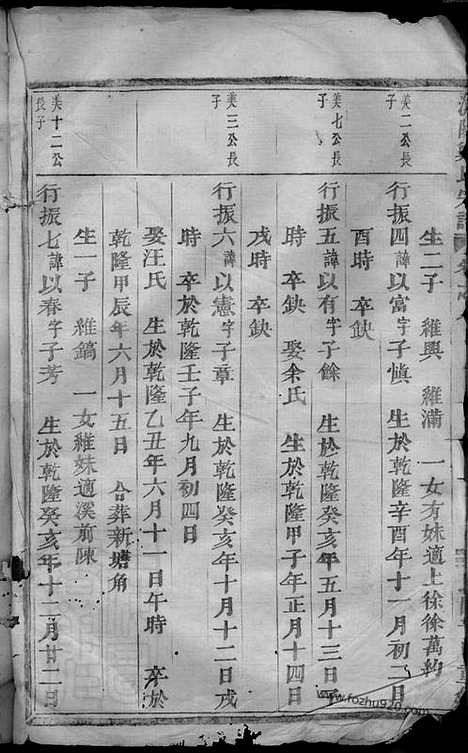 生二子 維興 維滿 一女有妹適上徐徐萬約
美二公長子
行振四諱以富字子慎 生於乾隆辛酉年十一月初二日
酉時 卒缺
美七公長子
行振五諱以有字子餘 生於乾隆癸亥年五月十三日
時 卒缺 娶余氏 生於乾隆甲子年正月十四日
戌時 卒缺
美三公長子
行振六諱以憲字子章 生於乾隆癸亥年十月十二日戌
時 卒於乾隆壬子年九月初四日
娶汪氏 生於乾隆乙丑年六月十一日午時 卒於
乾隆甲辰年六月十五日 合葬新塘角
生一子 維鎬 一女維妹適溪前陳
美十二公長子
行振七諱以春字子芳 生於乾隆癸亥年十二月廿二日
www.fozhu920.com